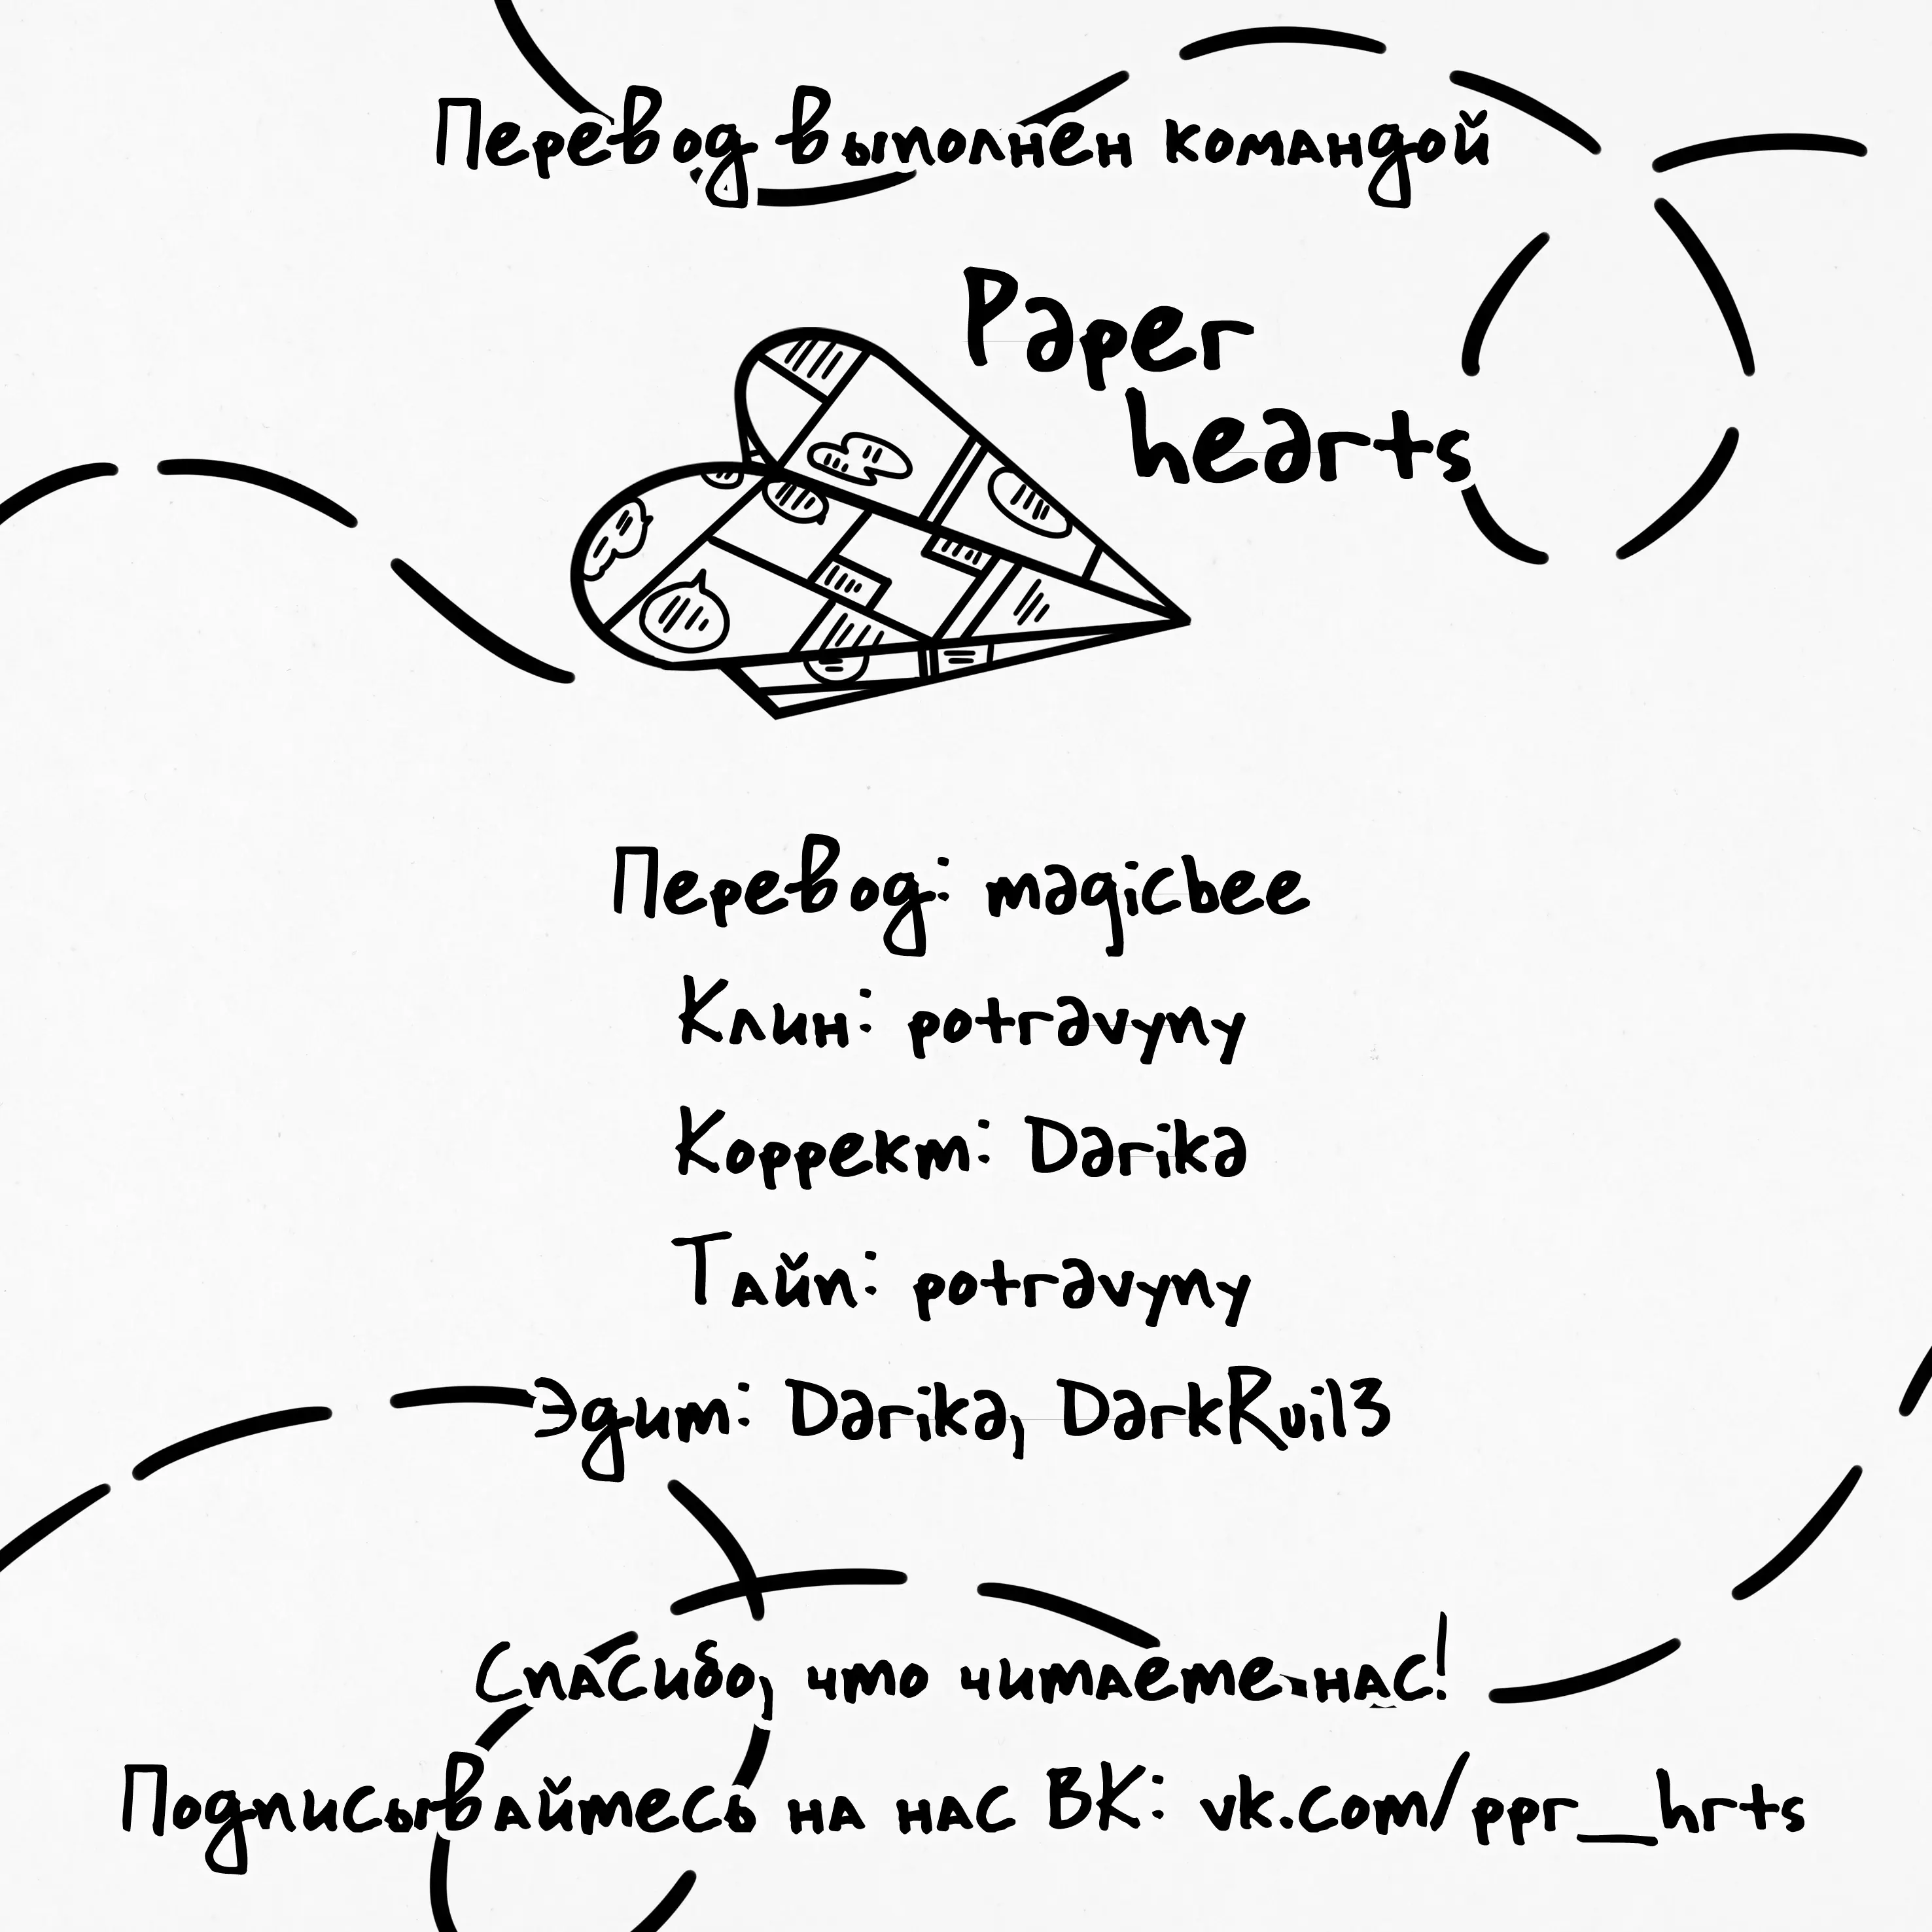 Перевод выполнен командой
Paper
hearts
Перевод: magicbee
Клин: potravyny
Коррект: Darika
Тайп: potravyny
Эдит: Darika, DarkRuil3
Спасибо, что читаете нас!
Подписывайтесь на нас ВК: vk.com/ppr__hrts